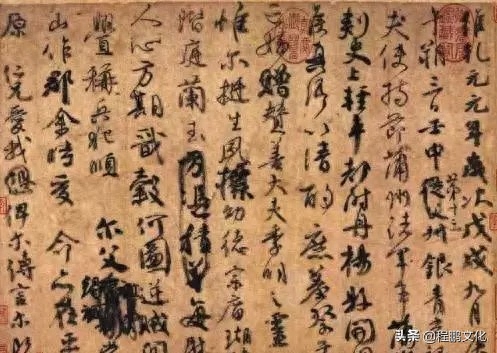 維乾元元年歲次戊戌九月庚
午朔三日壬申第十三從父叔銀青
夫使持節蒲州諸軍事
刺史上輕車都尉丹楊縣開國
侯真卿以清酌庶羞祭于
亡姪贈贊善大夫季明之靈
惟爾挺生夙標幼德宗廟瑚
階庭蘭玉方憑積善每慰
人心方期戩穀何圖逆賊閒
釁稱兵犯順爾父
山作郡余時受命亦在平
原仁兄愛我俾爾傳言爾既
头条 @程鹏文化